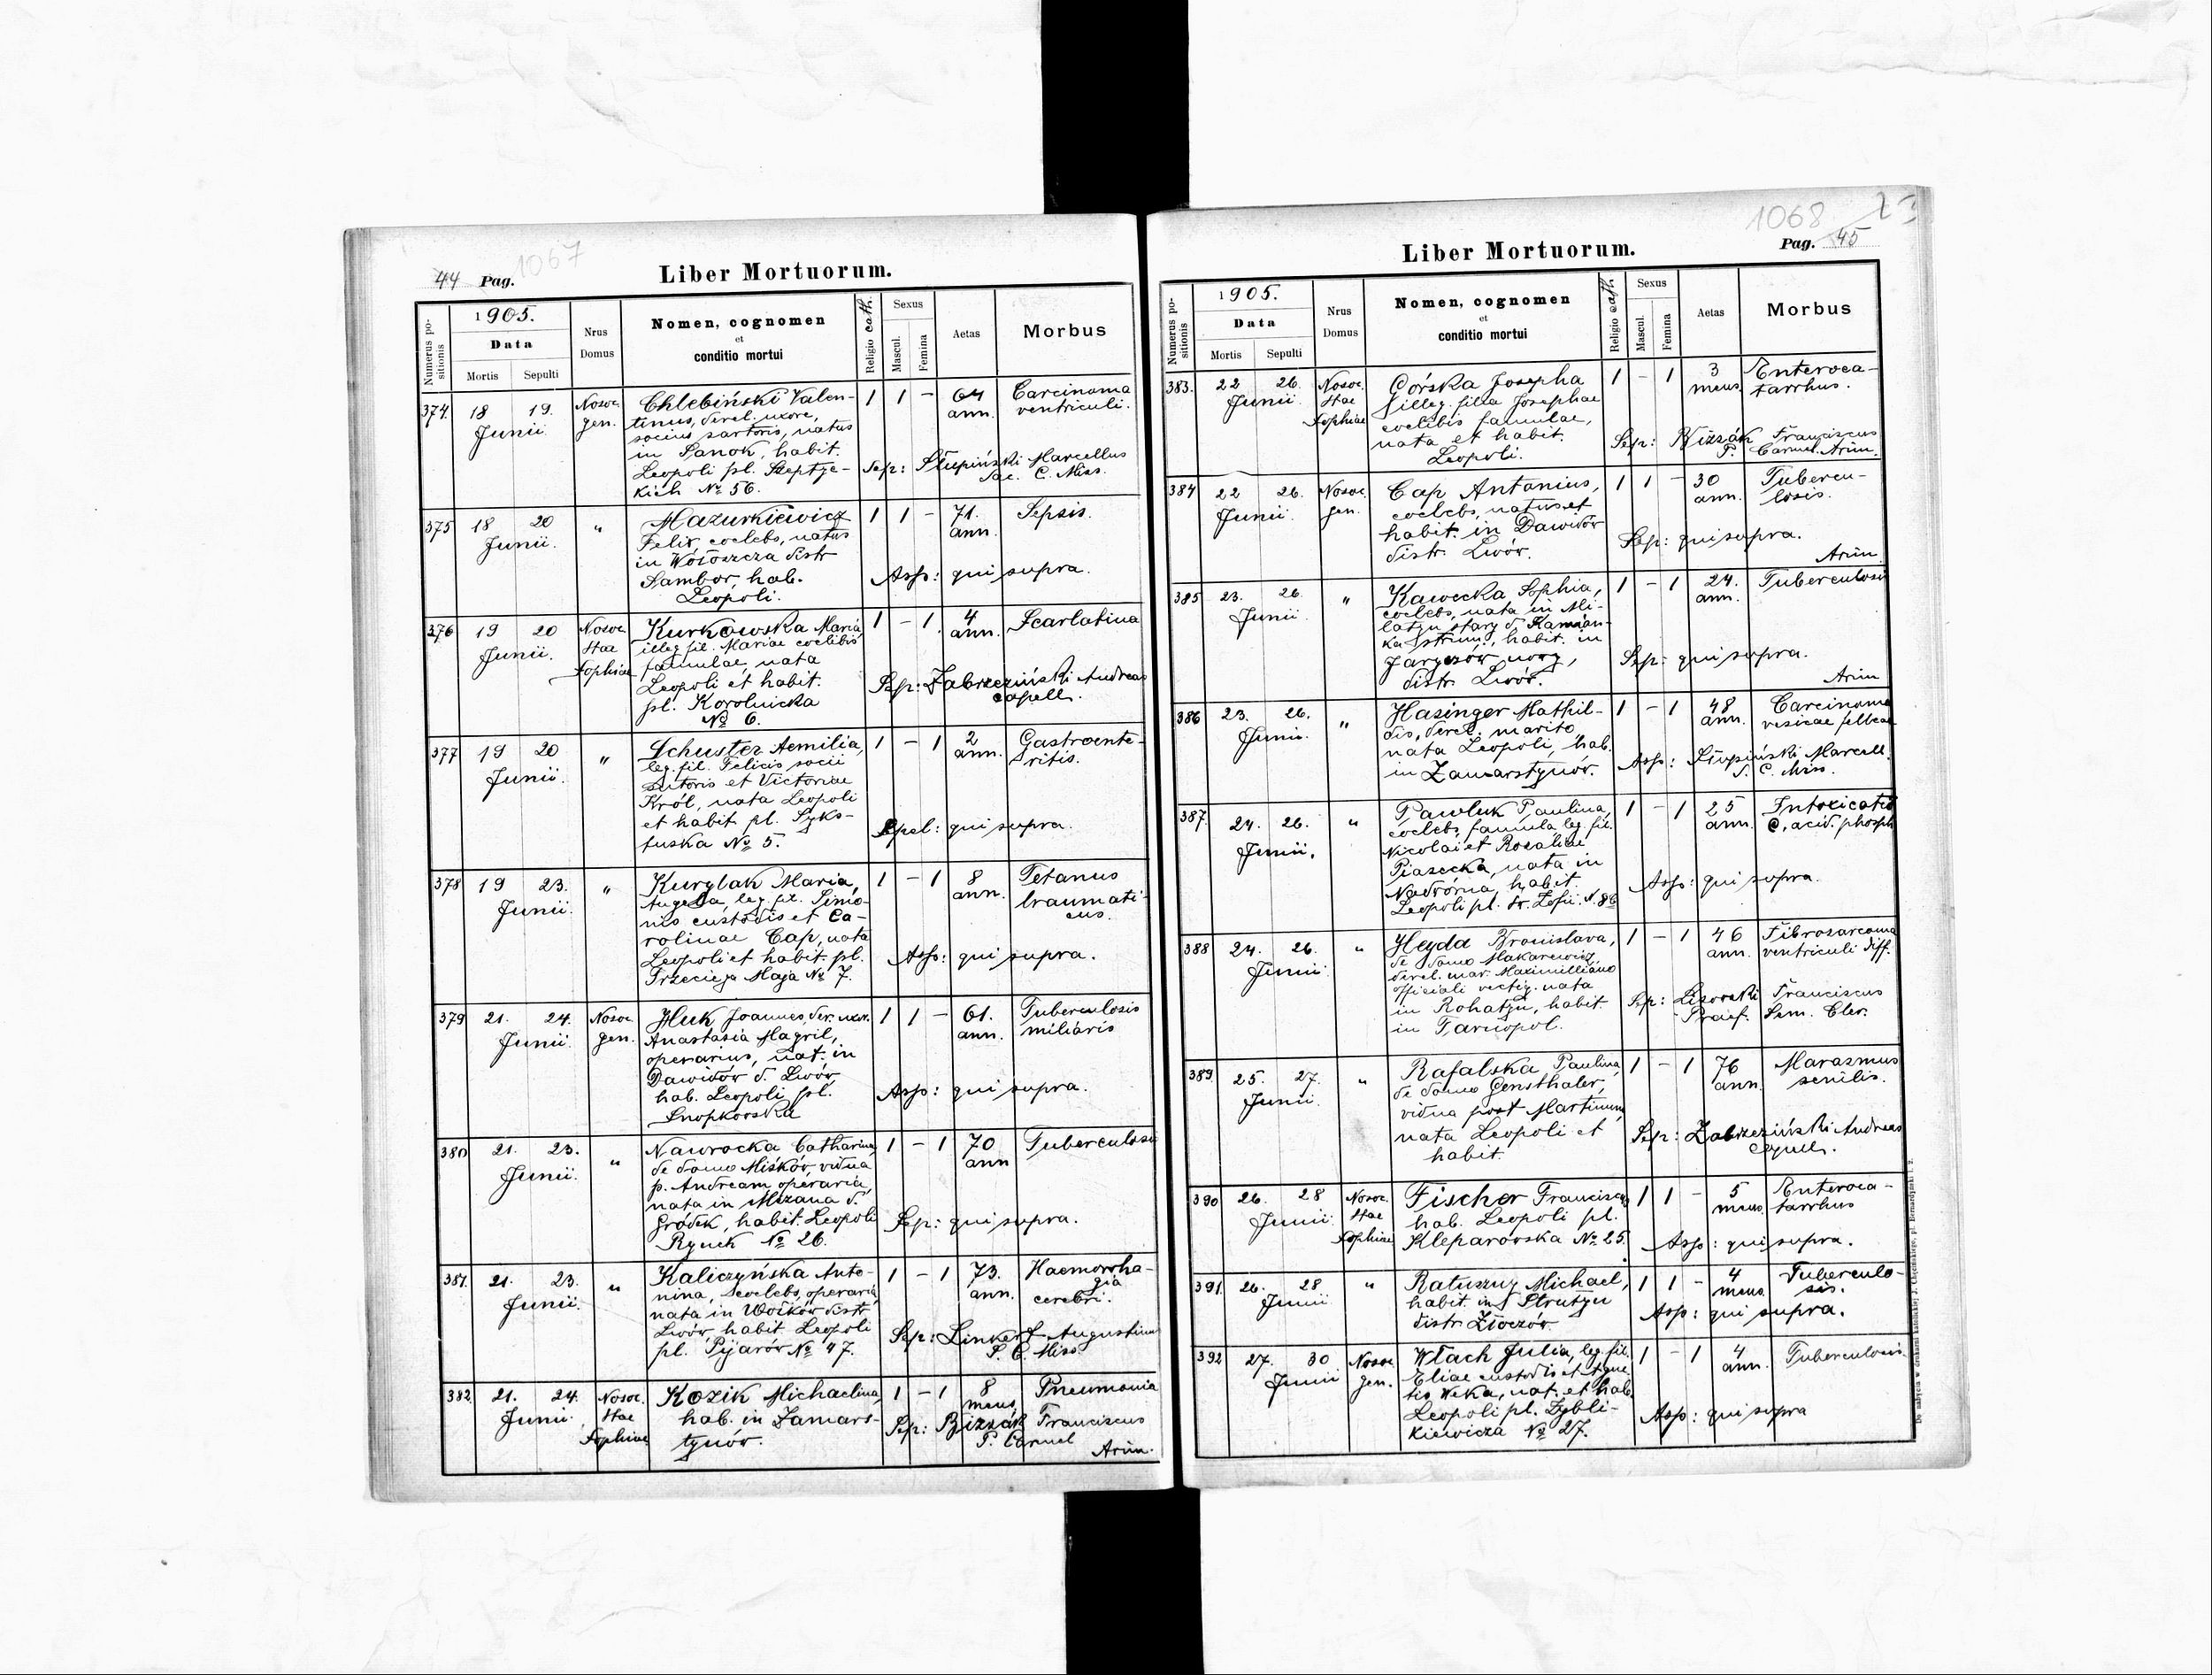 1067
44 Pag.
Liber Mortuorum.
Numerus positionis
1905.
Data
Mortis Sepulti
Nrus Domus
Nomen, cognomen
et
conditio mortui
Religio cath.
Sexus
Mascul. Femina
Aetas
Morbus
374 18 19. Nosoc. Chlebiński Valen- 1 1 - 64 Carcinoma
Junii gen. tinus, derel. uxore, ann. ventriculi.
socius sartoris, natus
in Sanok, habit.
Leopoli pl. Szeptyc- Sep: Słupiński Marcellus
kich № 56. Sac. C. Miss.
375 18 20 " Mazurkiewicz 1 1 - 71. Sepsis.
Junii. Felix, coelebs, natus ann.
in Wołoszcza distr
Sambor, hab. Assp: qui supra.
Leopoli.
376 19 20 Nosoc. Kurkowska Maria 1 - 1 4 Scarlatina
Junii. Stae illeg. fil. Mariae coelibis ann.
Sophiae famulae, nata
Leopoli et habit. Sep: Zabrzeziński Andreas
pl. Korolnicka capell.
№ 6.
377 19 20 " Schuster Aemilia, 1 - 1 2 Gastroente-
Junii. leg. fil. Felicis socii ann. ritis.
sutoris et Victoriae
Król, nata Leopoli
et habit. pl. Syks- Sepel: qui supra.
tuska № 5.
378 19 23. " Kurylak Maria, 1 - 1 8 Tetanus
Junii. Angela, leg. fil. Simo- ann. traumati-
nis custodis et Ca- cus.
rolinae Cap, nata
Leopoli et habit. pl. Assp: qui supra.
Trzeciego Maja № 7.
379 21. 24. Nosoc. Huk Joannes, der. uxor. 1 1 - 61. Tuberculosis
Junii. gen. Anastasia Magril, ann. miliaris
operarius, nat. in
Dawidów d. Lwów,
hab. Leopoli pl. Assp: qui supra.
Snopkowska
380 21. 23. " Nawrocka Catharina, 1 - 1 70 Tuberculosis
Junii. de domo Miśków, vidua ann
p. Andream operaria,
nata in Mszana d.
Gródek, habit. Leopoli Sep: qui supra.
Rynek № 26.
381. 21. 23. " Kaliczyńska Anto- 1 - 1 73. Haemorrha-
Junii. nina, coelebs, operaria, ann. gia
nata in Wołków distr cerebri.
Lwów, habit. Leopoli Sep: Linkert Augustinus
pl. Pijarów № 47. S. C. Miss.
382 21. 24. Nosoc. Kozik Michaelina, 1 - 1 8 Pneumonia
Junii. Stae hab. in Zamars- mens. Sep: Bizzák Franciscus
Sophiae tynów. P. Carmel
Arim.
1068
Pag. 45
Liber Mortuorum.
Numerus positionis
1905.
Data
Mortis Sepulti
Nrus Domus
Nomen, cognomen
et
conditio mortui
Religio cath.
Sexus
Mascul. Femina
Aetas
Morbus
383. 22 26. Nosoc. Górska Josepha 1 - 1 3 Enteroca-
Junii Stae illeg. filia Josephae mens. tarrhus.
Sophiae coelibis famulae,
nata et habit. Sep: Bizzák Franciscus
Leopoli. P. Carmel. Arim.
384 22 26. Nosoc. Cap Antonius, 1 1 - 30 Tubercu-
Junii. gen. coelebs, natus et ann. losis.
habit. in Dawidów Sep: qui supra.
distr. Lwów. Arim
385 23. 26 " Kawecka Sophia, 1 - 1 24. Tuberculosis
Junii coelebs, nata in Mi- ann.
latyn stary d. Kamion-
ka strum., habit. in
Jaryczów nowy, Sep: qui supra.
distr. Lwów. Arim
386 23. 26. " Hasinger Mathil- 1 - 1 48 Carcinoma
Junii. dis, derel. marito, ann. vesicae felleae
nata Leopoli, hab. Assp: Słupiński Marcell.
in Zamarstynów. S. C. Miss.
387. 24. 26. " Pawluk Paulina, 1 - 1 25 Intoxicatio
Junii. coelebs, famula, leg. fil. ann. c. acid. phosph
Nicolai et Rosaliae
Piasecka, nata in
Nadwórna, habit. Assp: qui supra.
Leopoli pl. św. Zofii. № 86
388 24. 26. " Heyda Bronislava, 1 - 1 46 Fibrosarcoma
Junii de domo Makarewicz, ann. ventriculi diff.
derel. mar. Maximilliano
officiali vectig. nata
in Rohatyn, habit. Sep: Lisowski Franciscus
in Tarnopol. Praef. Sem. Cler.
389 25. 27. " Rafalska Paulina, 1 - 1 76 Marasmus
Junii. de domo Gensthaler, ann. senilis.
vidua post Martinum,
nata Leopoli et Sep: Zabrzeziński Andreas
habit. capell.
390 26. 28 Nosoc. Fischer Franciscus, 1 1 - 5 Enteroca-
Junii Stae hab. Leopoli pl. mens. tarrhus
Sophiae Kleparowska № 25. Assp: qui supra.
391. 26. 28 " Ratuszny Michael, 1 1 - 4 Tuberculo-
Junii habit. in Strutyn mens. sis.
distr. Złoczów. Assp: qui supra.
392 27. 30 Nosoc. Włach Julia, leg. fil. 1 - 1 4 Tuberculosis.
Junii gen. Eliae custodis et Agne- ann.
tis Weka, nat. et hab.
Leopoli pl. Zybli- Assp: qui supra
kiewicza № 27.